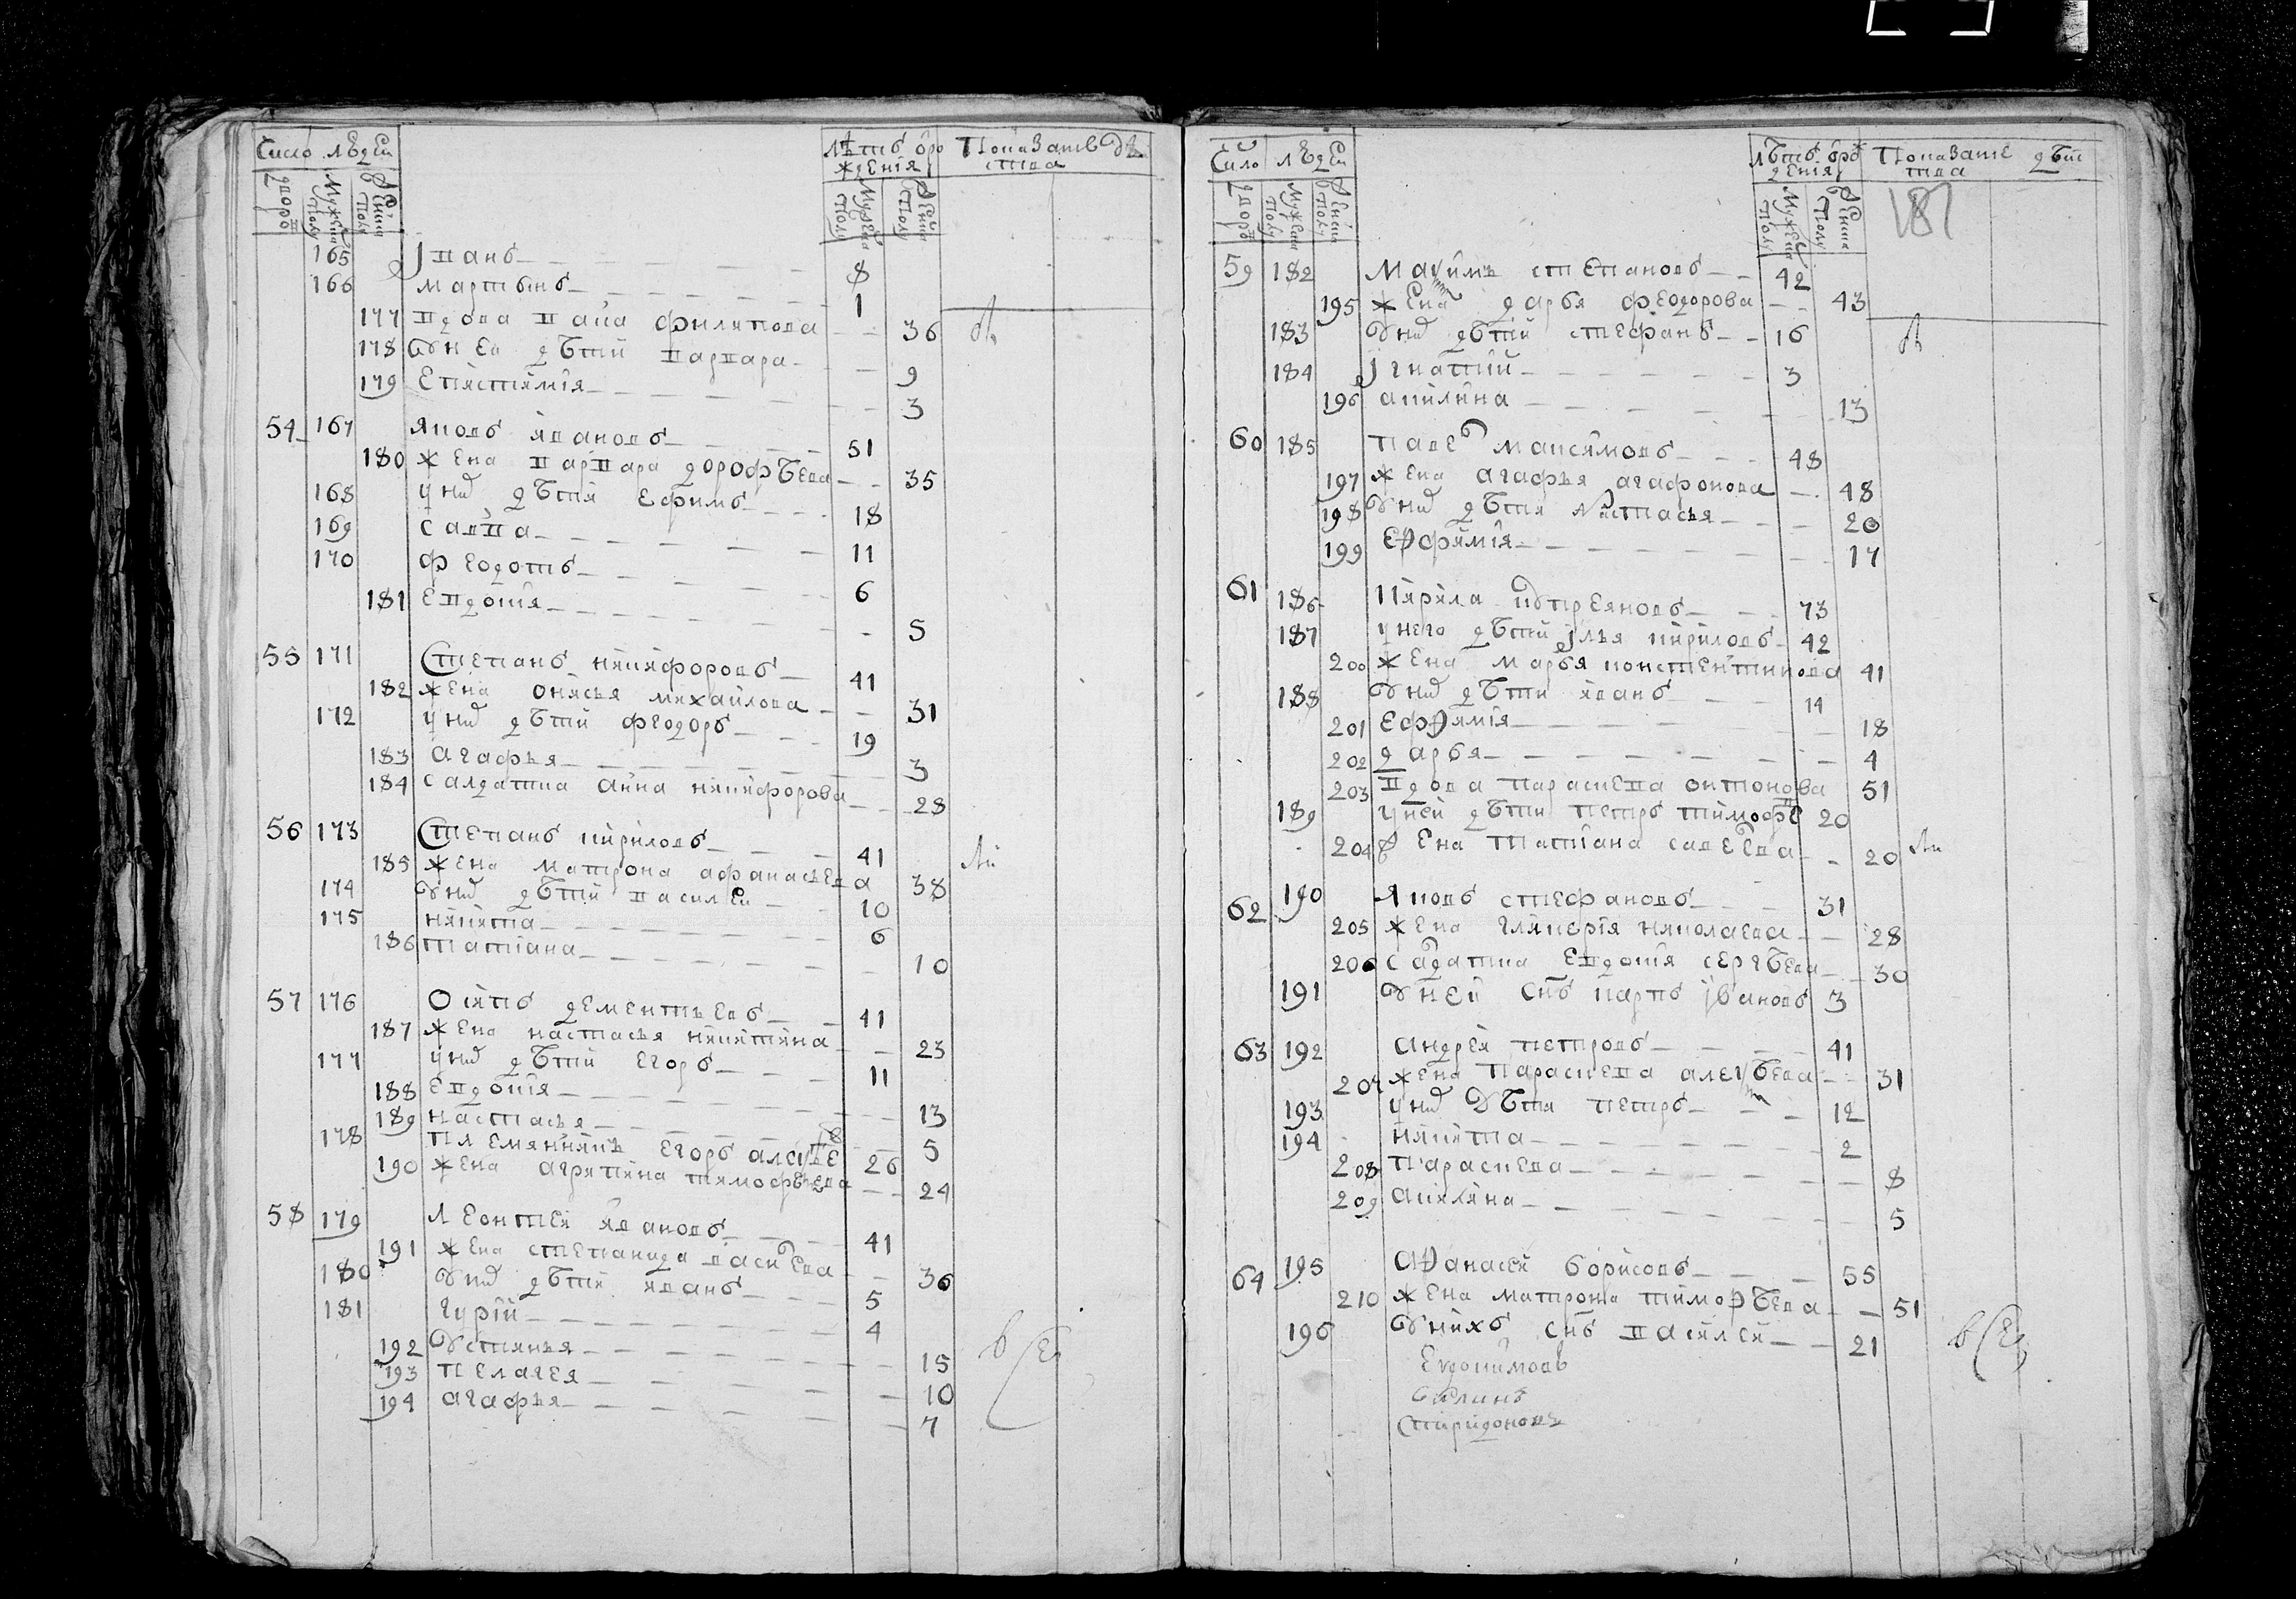 Число людей
лѣтъ ѿро
жденія
Показателдѣ
ства
дворо
Мужеска полу
Женска полу
Мужеска полу
Женска полу
165 Іванъ 8
166 мартынъ 1
177 вдова васа филипова 36
178 Ѹ нея дѣти варвара 9
179 епистимія 3
54 167 яковъ ивановъ 51
180 жена варвара дорофѣева 35
168 у них дѣти ефимъ 18
169 савва 11
170 федотъ 6
181 евдокія 5
55 171 Степанъ никифоровъ 41
182 жена онисья михаилова 31
172 у них дѣти федоръ 19
183 агафья 3
184 салдатка анна никифорова 28
56 173 Степанъ кириловъ 41
185 жена матрона афанасьева 38
174 Ѹ них дѣти василеи 10
175 никита 6
186 татіана 10
57 176 Осипъ дементьевъ 41
187 жена настасья никитина 23
177 у них дѣти егоръ 11
188 евдокія 13
189 настасья 5
178 племянникъ егоръ алексѣевъ 26
190 жена агрипина тимофеева 24
58 179 Леонтеи ивановъ 41
191 жена степанида васильева 36
180 Ѹ них дѣти иванъ 5
181 гурій 4
192 Ѹстинья 15
193 пелагея 10
194 агафья 7
Число людей
лѣтъ ѿрож
денія
Показате дѣл
ства
дворо
Мужеска полу
Женска полу
Мужеска полу
Женска полу
187
59 182 Максимъ степановъ 42
195 жена дарья федорова 43
183 Ѹ них дѣти стефанъ 16
184 Ігнатій 3
196 акилина 13
60 185 павелъ максимовъ 48
197 жена агафья агафонова 48
198 Ѹ них дѣти настасья 20
199 евфимія 17
61 186 Кирила кѹпреяновъ 73
187 у него дѣти Ілья кириловъ 42
200 жена марья константинова 41
188 Ѹ них дѣти иванъ 14
201 ефимія 18
202 дарья 4
203 вдова параскева онтонова 51
189 у неи дѣти петръ тимофе 20
204 жена татіана савеева 20
62 190 Яковъ стефановъ 31
205 жена гликерія николаева 28
206 садатка евдокія сергѣева 30
191 Ѹ неи снъ карпъ Івановъ 3
63 192 андреи петровъ 41
207 жена параскева алексѣева 31
193 у них дѣти петръ 12
194 никита 2
208 параскева 8
209 акилина 5
64 195 афанасеи борисовъ 55
210 жена матрона тимофѣева 51
196 Ѹ нихъ снъ василеи 21
Евдокимовъ
Спиридоновъ